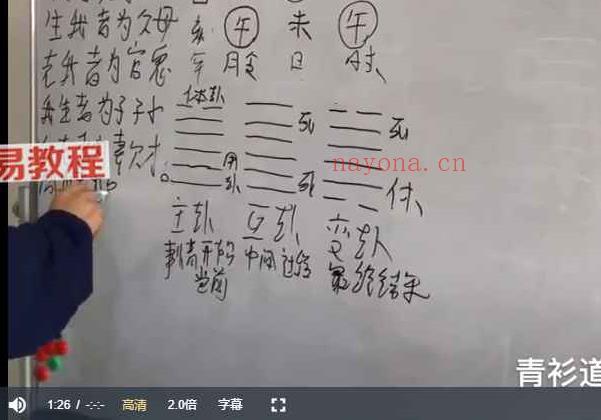 生我者为父母
克我者为官鬼
我生者为子孙
亥 午 未 午
年 月 日 时
体卦
用
卦
主卦 互卦 变卦
事情开始 中间过经 最终结果
当前
易教程
nayona.cn
青衫道
1:26 / -:-:- 高清 2.0倍 字幕